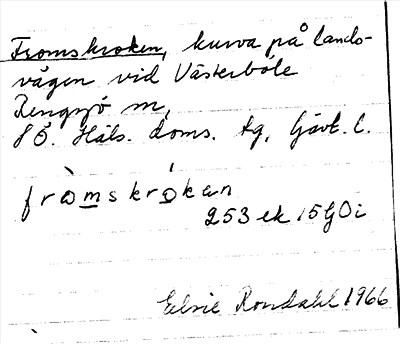 Fromskroken, kurva på lands-
vägen vid Västerböle
Rengsjö m,
SÖ. Häls. doms. tg, Gävl. l.
fròmskrók​en
253 ek 15 GOi
Elsie Rondahl 1966